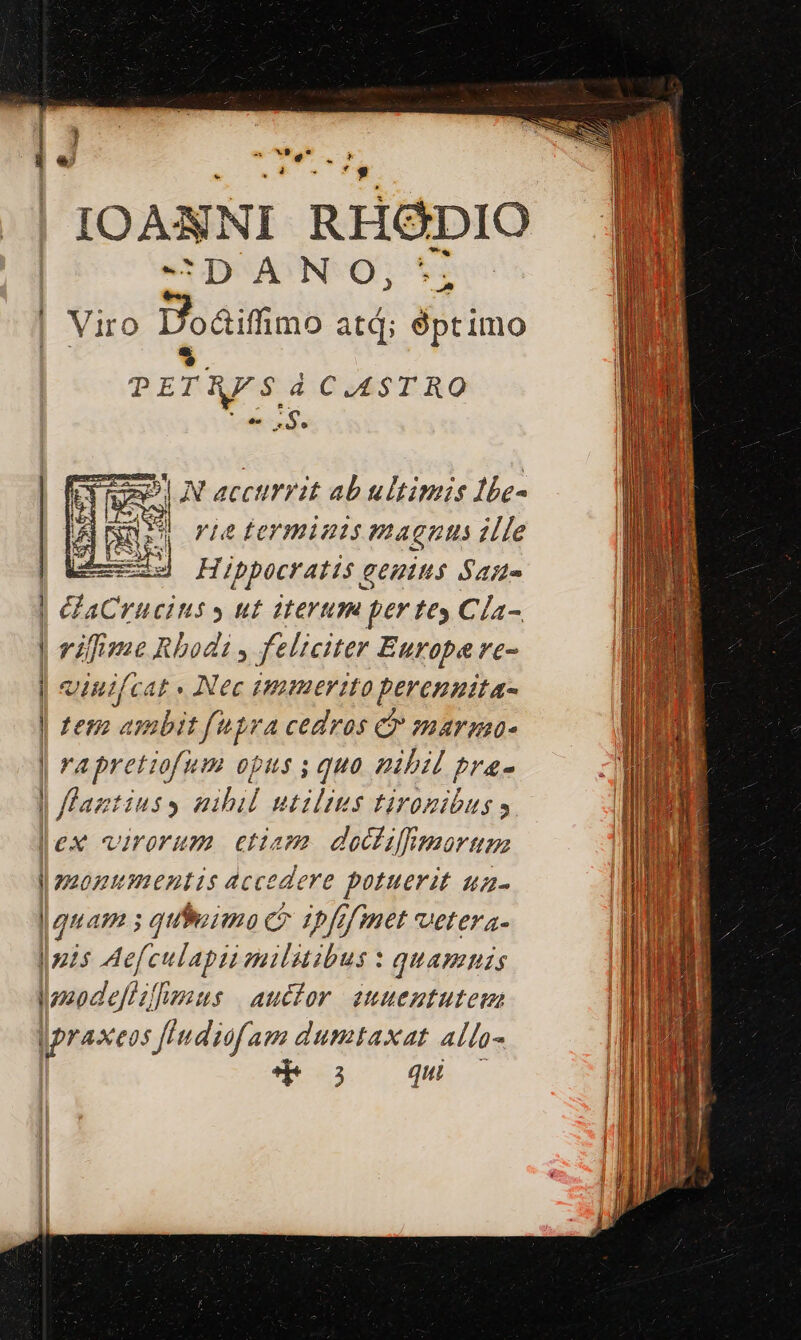 IOANNI RHODIO
DANO,
Viro Doctiſſimo atq; óptimo
PETRVS à CASTRO
S.
EN accurrit ab ultimis Ibe-
riæ terminis magnus ille
Hippocratis genius San-
ctaCrucius, ut iterum per te, Cla-
riſſime Rhodi, feliciter Europa re-
viuiſcat. Nec immerito perennita-
tem ambit ſupra cedros & marmo-
rapretioſum opus; quo nihil præ-
ſtantius, nihil utilius tironibus,
ex virorum etiam doctiſſimorum
monumentis accedere potuerit un-
quam; quinimo & ipſiſmet vetera-
nis Aeſculapii militibus: quamuis
modeſtiſſimus auctor iuuentutem
praxeos ſtudioſam dumtaxat allo-
✠ 3 qui